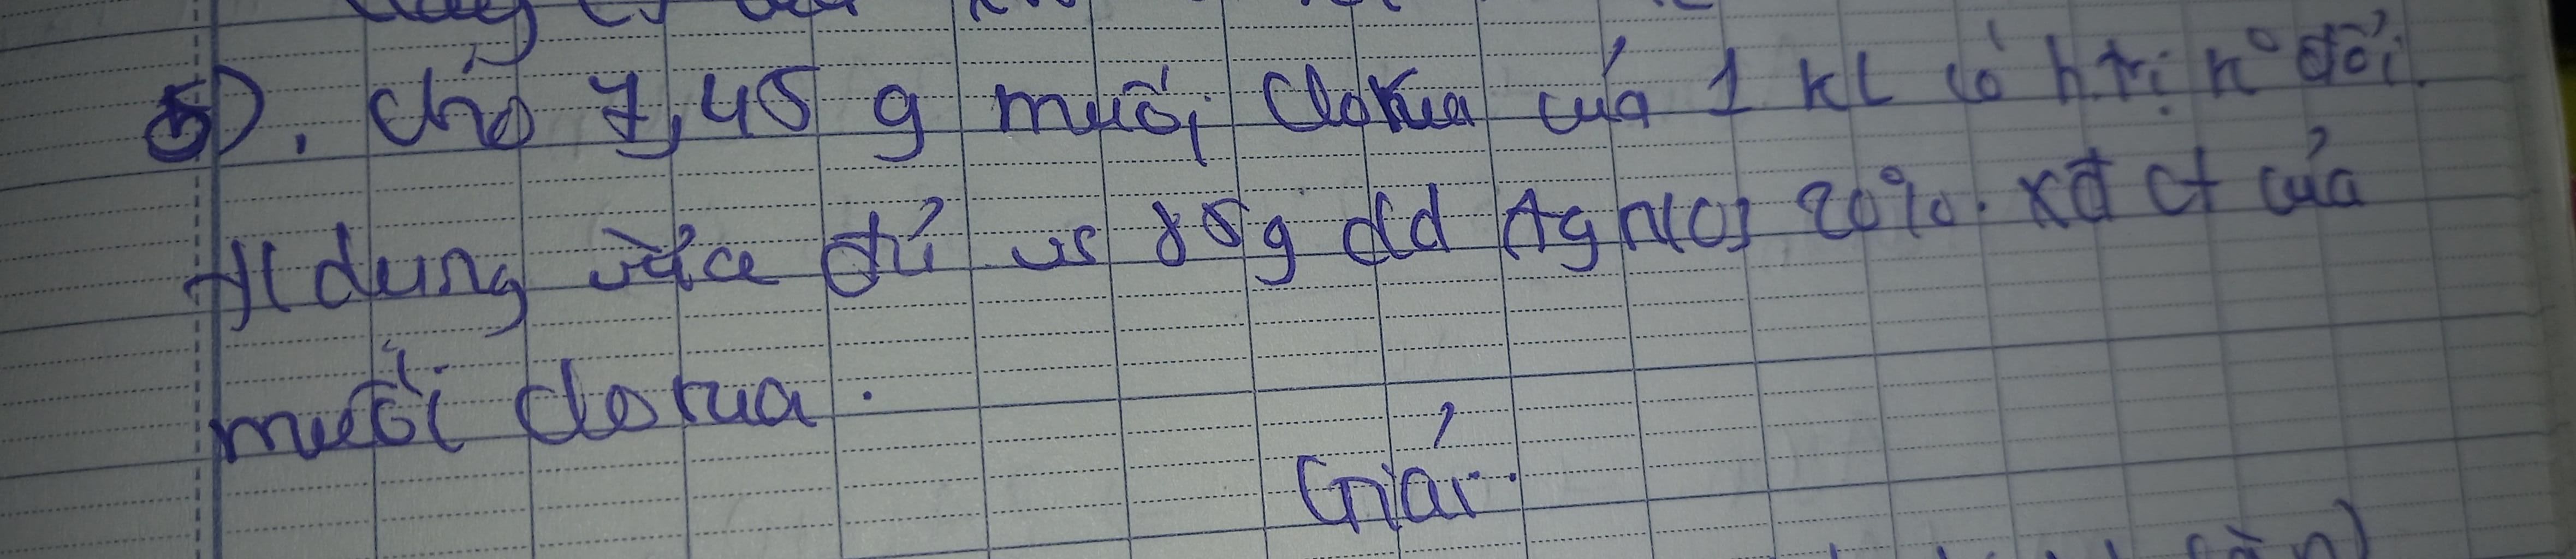 5). Cho 7,45 g muối Clorua của 1 kl có h.trị k° đổi.
t/dung vừa đủ vs 85g dd AgNO3 20%. xđ ct của
muối clorua.
Giải